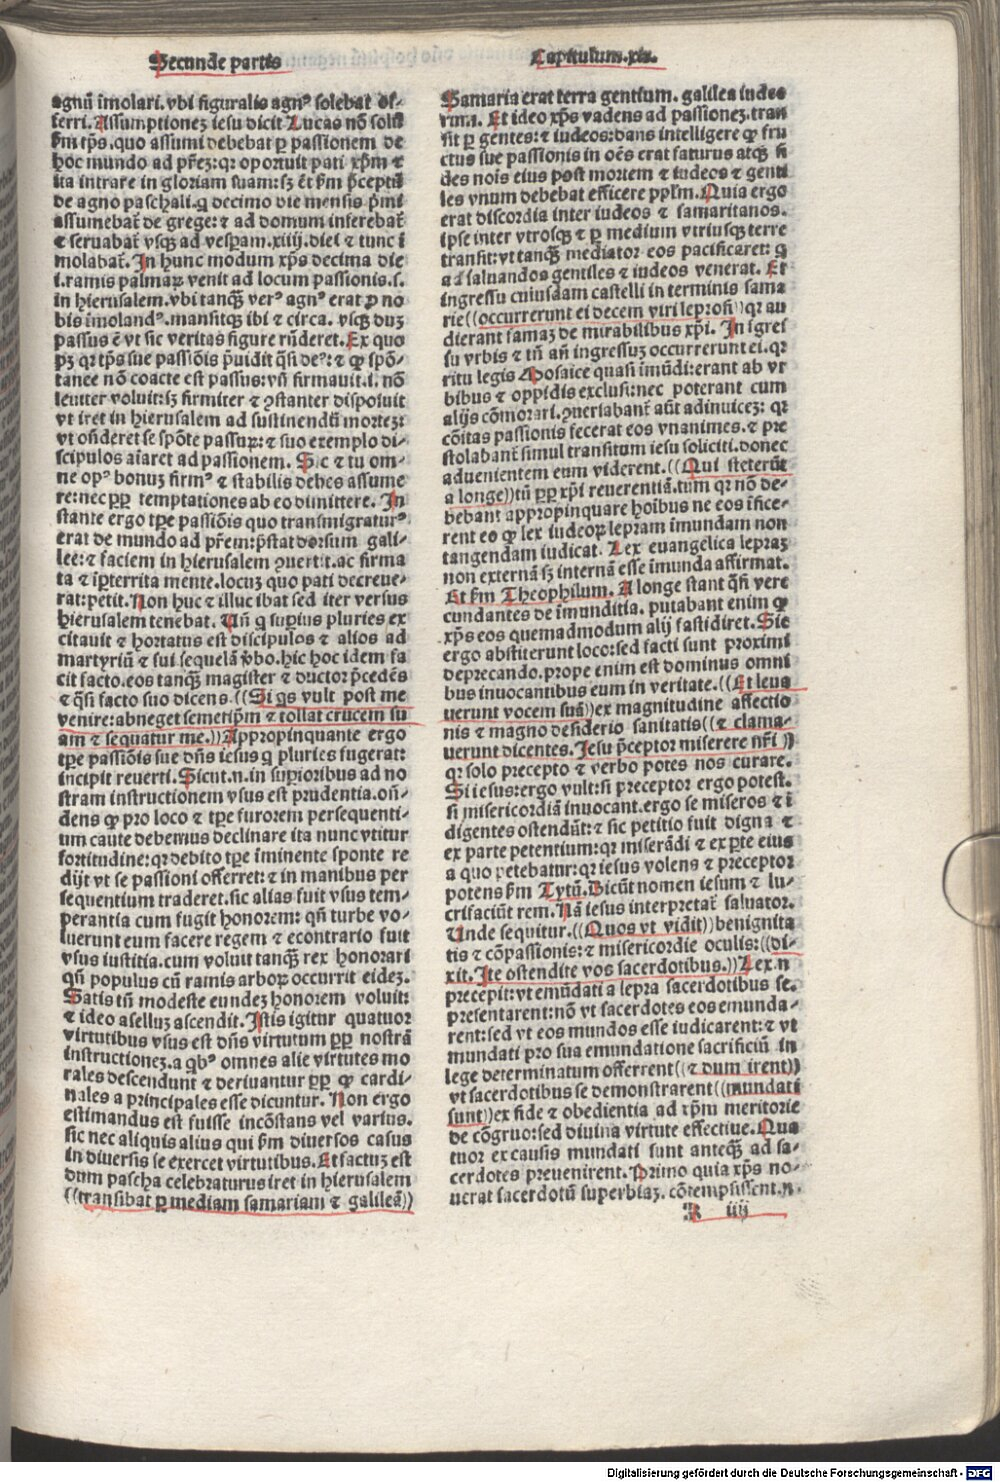 Secunde partis
Capitulum.xix.
agnū īmolari. vbi figuralis agnꝰ solebat of⸗
ferri. Assumptioneꝫ iesu dicit Lucas nō solū
ẜm tꝑs. quo assumi debebat ꝑ passionem de
hoc mundo ad pr̄eꝫ: qꝛ oportuit pati xp̄m ⁊
ita intrare in gloriam suam: sꝫ ēt ẜm p̄ceptū
de agno paschali. q̄ decimo die mensis p̄mi
assumebat̄ de grege: ⁊ ad domum inferebat̄
⁊ seruabat̄ vsqꝫ ad vesꝑam .xiiij. diei ⁊ tunc ī
molabat̄. In hunc modum xp̄s decima die
.i. ramis palmaꝝ venit ad locum passionis .s.
in hierusalem. vbi tanqꝫ verꝰ agnꝰ erat ꝓ no
bis īmolandꝰ. mansitqꝫ ibi ⁊ circa. vsqꝫ duꝫ
passus ē vt sic veritas figure rn̄deret. Ex quo
pꝫ qꝛ tꝑs sue passiōis p̄uidit q̄si deꝰ: ⁊ ꝙ spō⸗
tanee nō coacte est passus: vn̄ firmauit .i. nō
leuiter voluit: sꝫ firmiter ⁊ ꝯstanter disposuit
vt iret in hierusalem ad sustinendū morteꝫ:
vt on̄deret se spōte passuꝝ: ⁊ suo exemplo di⸗
scipulos aīaret ad passionem. Sic ⁊ tu om⸗
ne opꝰ bonuꝫ firmꝰ ⁊ stabilis debes assume
re: nec ꝓpꝑ temptationes ab eo dimittere. In
stante ergo tꝑe passiōis quo transmigraturꝰ
erat de mundo ad pr̄em: p̄stat dorsum gali⸗
lee: ⁊ faciem in hierusalem ꝯuertit. ac firma
ta ⁊ īꝑterrita mente. locuꝫ quo pati decreue⸗
rat: petit. Non huc ⁊ illuc ibat sed iter versus
hierusalem tenebat. Un̄ q̄ suꝑius pluries ex
citauit ⁊ hortatus est discipulos ⁊ alios ad
martyriū ⁊ sui sequelā ꝟbo. hic hoc idem fa
cit facto. eos tanqꝫ magister ⁊ ductor p̄cedēs
⁊ q̄si facto suo dicens. ((Si q̄s vult post me
venire: abneget semetip̄m ⁊ tollat crucem su
am ⁊ sequatur me.)) Appropinquante ergo
tꝑe passiōis sue dn̄s iesus q̄ pluries fugerat:
incipit reuerti. Sicut .n. in suꝑioribus ad no
stram instructionem vsus est prudentia. on̄⸗
dens ꝙ pro loco ⁊ tꝑe furorem persequenti⸗
um caute debemus declinare ita nunc vtitur
fortitudine: qꝛ debito tꝑe īminente sponte re
dijt vt se passioni offerret: ⁊ in manibus per
sequentium traderet. sic alias fuit vsus tem⸗
perantia cum fugit honorem: qn̄ turbe vo⸗
luerunt eum facere regem ⁊ econtrario fuit
vsus iustitia. cum voluit tanqꝫ rex honorari
qn̄ populus cū ramis arboꝝ occurrit eideꝫ.
Satis tn̄ modeste eundeꝫ honorem voluit:
⁊ ideo aselluꝫ ascendit. Istis igitur quatuor
virtutibus vsus est dn̄s virtutum ꝓpꝑ nostrā
instructioneꝫ. a qbꝰ omnes alie virtutes mo
rales descendunt ⁊ deriuantur ꝓpꝑ ꝙ cardi⸗
nales a principales esse dicuntur. Non ergo
estimandus est fuisse incōstans vel varius.
sic nec aliquis alius qui ẜm diuersos casus
in diuersis se exercet virtutibus. Et factuꝫ est
dum pascha celebraturus iret in hierusalem
((transibat ꝑ mediam samariam ⁊ galileā))
Samaria erat terra gentium. galilea iudeo
rum. Et ideo xp̄s vadens ad passioneꝫ. tran
sit ꝑ gentes: ⁊ iudeos: dans intelligere ꝙ fru
ctus sue passionis in oēs erat saturus atqꝫ fi
des nois eius post mortem ⁊ iudeos ⁊ genti
les vnum debebat efficere ppl̄m. Quia ergo
erat discordia inter iudeos ⁊ samaritanos.
ipse inter vtrosqꝫ ⁊ ꝑ medium vtriusqꝫ terre
transit: vt tanqꝫ mediator eos pacificaret: q̄
ad saluandos gentiles ⁊ iudeos venerat. Et
ingressu cuiusdam castelli in terminis sama
rie ((occurrerunt ei decem viri leprosi)) qꝛ au
dierant famaꝫ de mirabilibus xp̄i. In īgres
su vrbis ⁊ tn̄ an̄ ingressuꝫ occurrerunt ei. qꝛ
ritu legis Mosaice quasi īmūdi: erant ab vr
bibus ⁊ oppidis exclusi: nec poterant cum
alijs cōmorari. ꝯueriabant̄ aūt adinuiceꝫ: qꝛ
cōitas passionis fecerat eos vnanimes. ⁊ pre
stolabant̄ simul transitum iesu soliciti. donec
aduenientem eum viderent. ((Qui steterūt
a longe)) tū ꝓpꝑ xp̄i reuerentiā. tum qꝛ nō de⸗
bebant appropinquare hoibus ne eos īfice⸗
rent eo ꝙ lex iudeoꝝ lepram īmundam non
tangendam iudicat. Lex euangelica lepraꝫ
non externā sꝫ internā esse īmunda affirmat.
Et ẜm Theophilum. A longe stant q̄si vere
cundantes de īmunditia. putabant enim ꝙ
xp̄s eos quemadmodum alij fastidiret. Sic
ergo abstiterunt loco: sed facti sunt proximi
deprecando. prope enim est dominus omni
bus inuocantibus eum in veritate. ((Et leua
uerunt vocem suā)) ex magnitudine affectio
nis ⁊ magno desiderio sanitatis ((⁊ clama⸗
uerunt dicentes. Iesu p̄ceptor miserere nr̄i))
qꝛ solo precepto ⁊ verbo potes nos curare.
Si iesus: ergo vult: si preceptor ergo potest.
si misericordiā inuocant. ergo se miseros ⁊ ī
digentes ostendūt: ⁊ sic petitio fuit digna ⁊
ex parte petentium: qꝛ miserādi ⁊ ex ꝑte eius
a quo petebatur: qꝛ iesus volens ⁊ preceptor
potens ẜm Tytū. Dicūt nomen iesum ⁊ lu⸗
crifaciūt rem. Nā iesus interpretat̄ saluator.
Unde sequitur. ((Quos vt vidit)) benignita
tis ⁊ cōpassionis: ⁊ misericordie oculis: ((di⸗
xit. Ite ostendite vos sacerdotibus.)) Lex .n
precepit: vt emūdati a lepra sacerdotibus se
presentarent: nō vt sacerdotes eos emunda⸗
rent: sed vt eos mundos esse iudicarent: ⁊ vt
mundati pro sua emundatione sacrificiū in
lege determinatum offerrent ((⁊ dum irent))
vt sacerdotibus se demonstrarent ((mundati
sunt)) ex fide ⁊ obedientia ad xp̄m meritorie
de cōgruo: sed diuina virtute effectiue. Qua
tuor ex causis mundati sunt anteqꝫ ad sa⸗
cerdotes preuenirent. Primo quia xp̄s no⸗
uerat sacerdotū superbiaꝫ. cōtempsissent .n.
R iiij
Digitalisierung gefördert durch die Deutsche Forschungsgemeinschaft - DFG